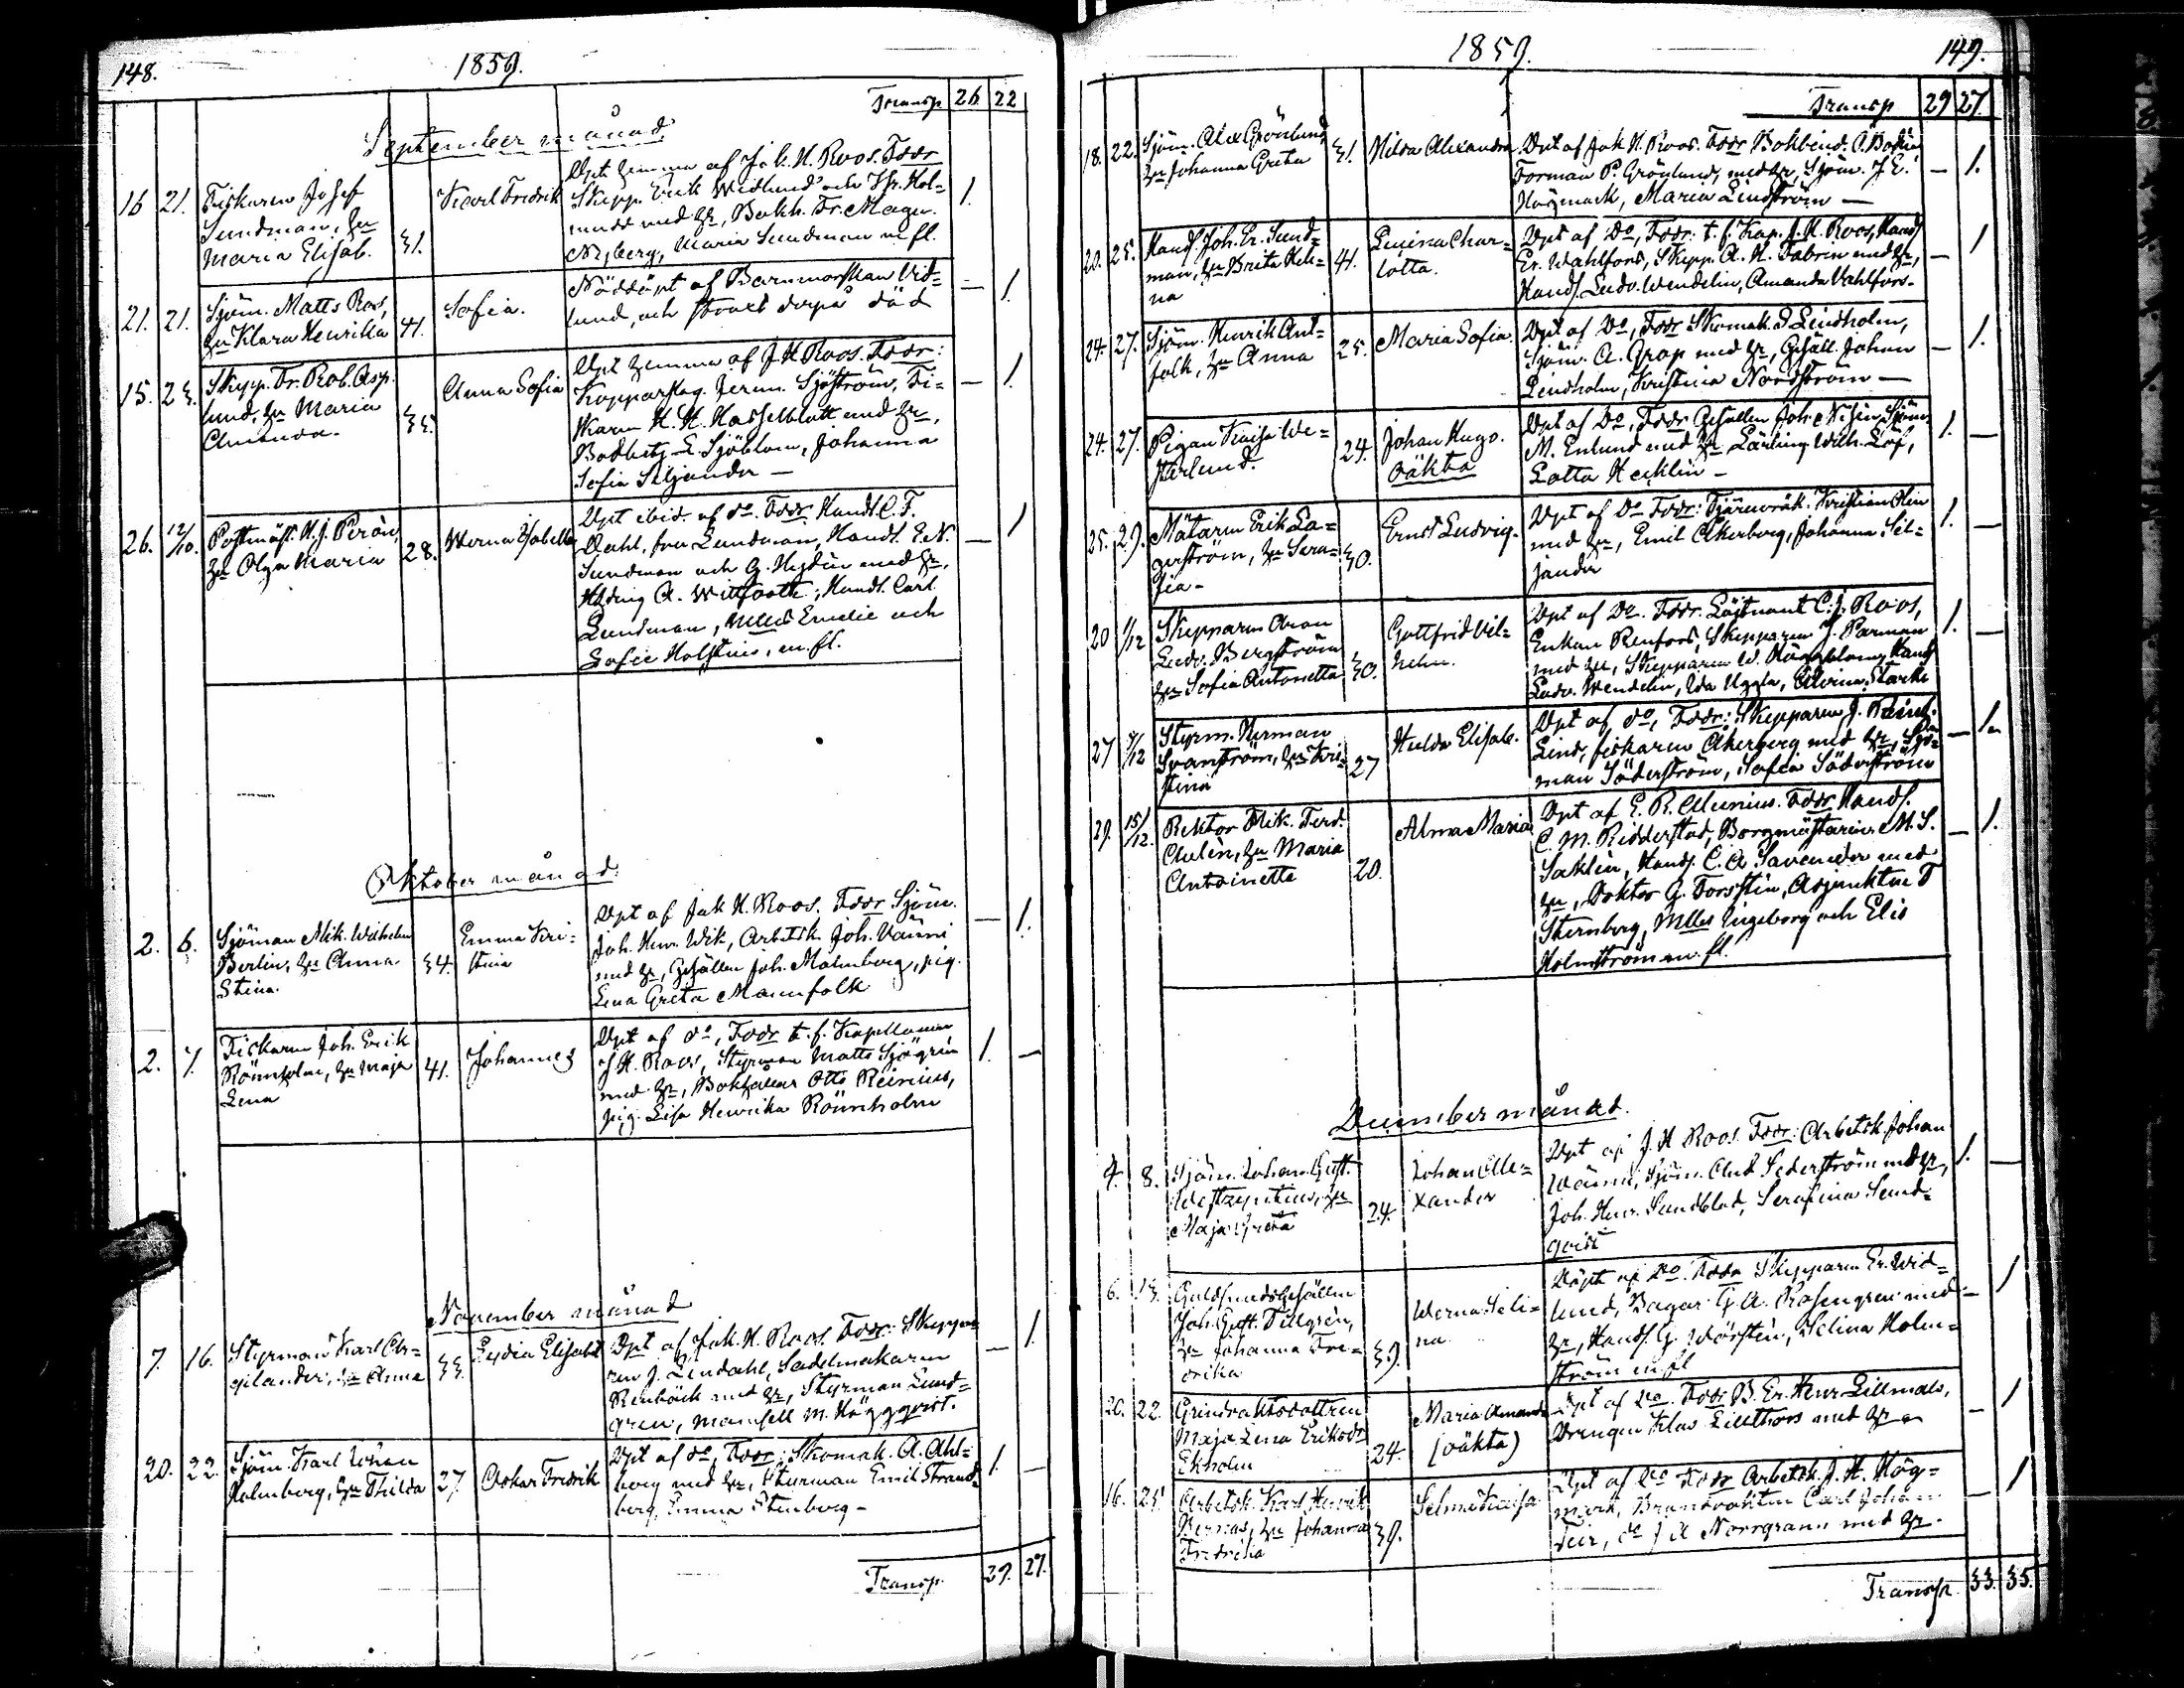 148.
1859.
Transp 26 22
September månad
16 21. Fiskaren Josef
Sundman, hu
Maria Elisab. 31.
Karl Fredrik
Döpt hemma af Jak. H. Roos. Fddr
Skepp. Erik Widlund och Hr. Hol-
med hr, Bokh. Fr. Magn.
Nyberg, Maria Sundman m fl. 1.
21. 21. Sjöm. Matts Ros,
hu Klara Henrika 41.
Sofia.
Nöddöpt af Barnmorskan Wid-
lund, och straxt derpå död — 1.
15. 23. Skepp. Fr. Rob. Asp-
lund, hu Maria
Amanda. 35.
Anna Sofia
Döpt hemma af J H Roos. Fddr:
Kopparslag. Herm. Sjöström, Fi-
skarn H. H. Hasselblatt med hr,
E. Sjöblom, Johanna
Sofia Siljander — — 1.
26. 12/10. Postmäst. H. J. Perón,
hu Olga Maria 28.
Werna Isabella
Döpt ibid. af do. Fddr Handl. C. F.
Dahl, fru Lundman, Handl. E. N.
Sundman och G. Hedin med hr,
Hading A. Witfooth, Handl. Carl
Lundman, Mlles Emelie och
Sofie Holstius, m. fl. — 1
Oktober månad.
2. 6. Sjöman Mik. Wilhelm
Berlin, hu Anna
Stina. 34.
Emma Kri-
stina
Döpt af Jak H. Roos. Fddr Sjöm.
Joh. Henr. Wik, Arbetsk. Joh. Wänni
med hr, Gesällen Joh. Malmberg, pig.
Lena Greta Mannfolk — 1.
2. 7. Fiskaren Joh. Erik
Rönnholm, hu Maja
Lena 41.
Johannes
Döpt af do, Fddr t. f. Kapellanen
J H. Roos, Styrman Matts Sjögrén
med hr, Bokhållar Otto Reinius,
pig. Lisa Henrika Rönnholm 1. —
November månad
7. 16. Styrman Karl Ar-
gilander, hu Anna 33.
Lydia Elisabet
Döpt af Jak. H. Roos. Fddr: Skeppa-
ren J. Lindahl, Sadelmakaren
Renbäck med hr, Styrman Lund-
gren, Mamsell M. Häggqvist. — 1.
20. 22. Sjöm. Karl Johan
Holmberg, hu Thilda 27.
Oskar Fredrik
Döpt af do, Fddr: Skomak. A. Ahl-
borg med hr, Styrman Emil Strand-
berg, Emma Stenberg — 1. —
Transp. 29. 27.
1859.
149.
Transp 29 27.
18. 22. Sjöm. Alex Grönlund,
hu Johanna Greta 31.
Hilda Alexandra
Döpt af Jak H. Roos. Fddr Bokbind. A. Bodin
Forman P. Grönlund, med hr, Sjöm. J E.
Högmark, Maria Lindström — — 1.
20. 25. Handl. Joh. Er. Sund-
man, hu Brita Hele-
na 41.
Lovina Char-
lotta.
Döpt af Do, Fddr: t. f. Kap. J. H. Roos, Handl
Er. Wahlfors, Skepp. A. H. Fabrin med hr,
Handl. Ludv. Wendelin, Amanda Wahlfors. — 1
24. 27. Sjöm. Henrik Ant-
folk, hu Anna 25.
Maria Sofia.
Döpt af Do, Fddr Skomak. S Lindholm,
Sjöm. A. Grap med hr, Gesäll. Johan
Lindholm, Kristina Nordström — — 1.
24. 27. Pigan Kaisa We-
sterlund. 24.
Johan Hugo.
oäkta
Döpt af Do, Fddr Gesällen Joh. Nisén, Sjöm.
M. Enlund med hr Lärling Wilh. Löf,
Lotta Hecklin — 1. —
25. 29. Mätaren Erik La-
gerström, hu Sera-
fia - 30.
Ernst Ludvig.
Döpt af Do Fddr: Kristian Alin
med hr, Emil Åkerberg, Johanna Sil-
jander 1. —
20 1/12 Skepparen Aron
Ludv. Bergström
hu Sofia Antonetta 30.
Gottfrid Wil-
helm.
Döpt af Do. Fddr. Löjtnant C. J. Roos,
Enkan Renfors, Skepparen J. Parman
med hr, Skepparen W. Häggblom, Handl
Ludv. Wendelin, Ida Uggla, Alvina Starke 1. —
27 9/12 Styrm. Herman
Svanström, hu Kri-
stina 27
Hulda Elisab.
Döpt af do, Fddr: Skepparen J. Reinh.
Lind, fiskaren Åkerberg med hr, Sjö-
man Söderström, Sofia Söderström — 1.
29. 15/12. Rektor Mik. Ferd.
Aulén, hu Maria
Antoinette 20.
Alma Maria
Döpt af E. R. Alcenius. Fddr Handl.
C. M. Ridderstad, Borgmästaren M. S.
Saklén, Handl. C. A Savander med
hr, Doktor G. Forstén, Adjunkten T
Sternberg, Mlles Ingeborg och Elis
Holmström m. fl. — 1.
December månad.
4. 8. Sjöm. Johan Gust.
Westzyntius, hu
Maja Greta 24.
Johan Ale-
xander
Döpt af J. H Roos. Fddr: Arbetsk. Johan
Wänni, Sjöm. And. Sederström med hr,
Joh. Henr. Sundblad, Serafina Sund-
qvist 1. —
6. 13. Guldsmedsgesällen
Joh. Gust. Tillgrén,
hu Johanna Fre-
drika 39.
Werna Seli-
na.
Döpt af Do. Fddr Skepparen Er. Wid-
lund, Bagar G. A. Rosengren med
hr, Handl. G. Worstén, Selina Holm-
ström m fl — 1
20. 22. Grindvaktsdottren
Maja Lena Eriksdr
Ekholm 24.
Maria Amanda
(oäkta)
Döpt af Do. Fddr B. Er. Henr Lillmats,
Drengen Klas Lillthors med hr — 1
16. 25. Arbetsk. Karl Henrik
hu Johanna
Fredrika 39.
Selma Kaisa
Döpt af Do Fddr Arbetsk. J. H. Hög-
mark, Brandvakten Carl Johan
do J A Norrgrann med hr. — 1
Transp. 33. 35.